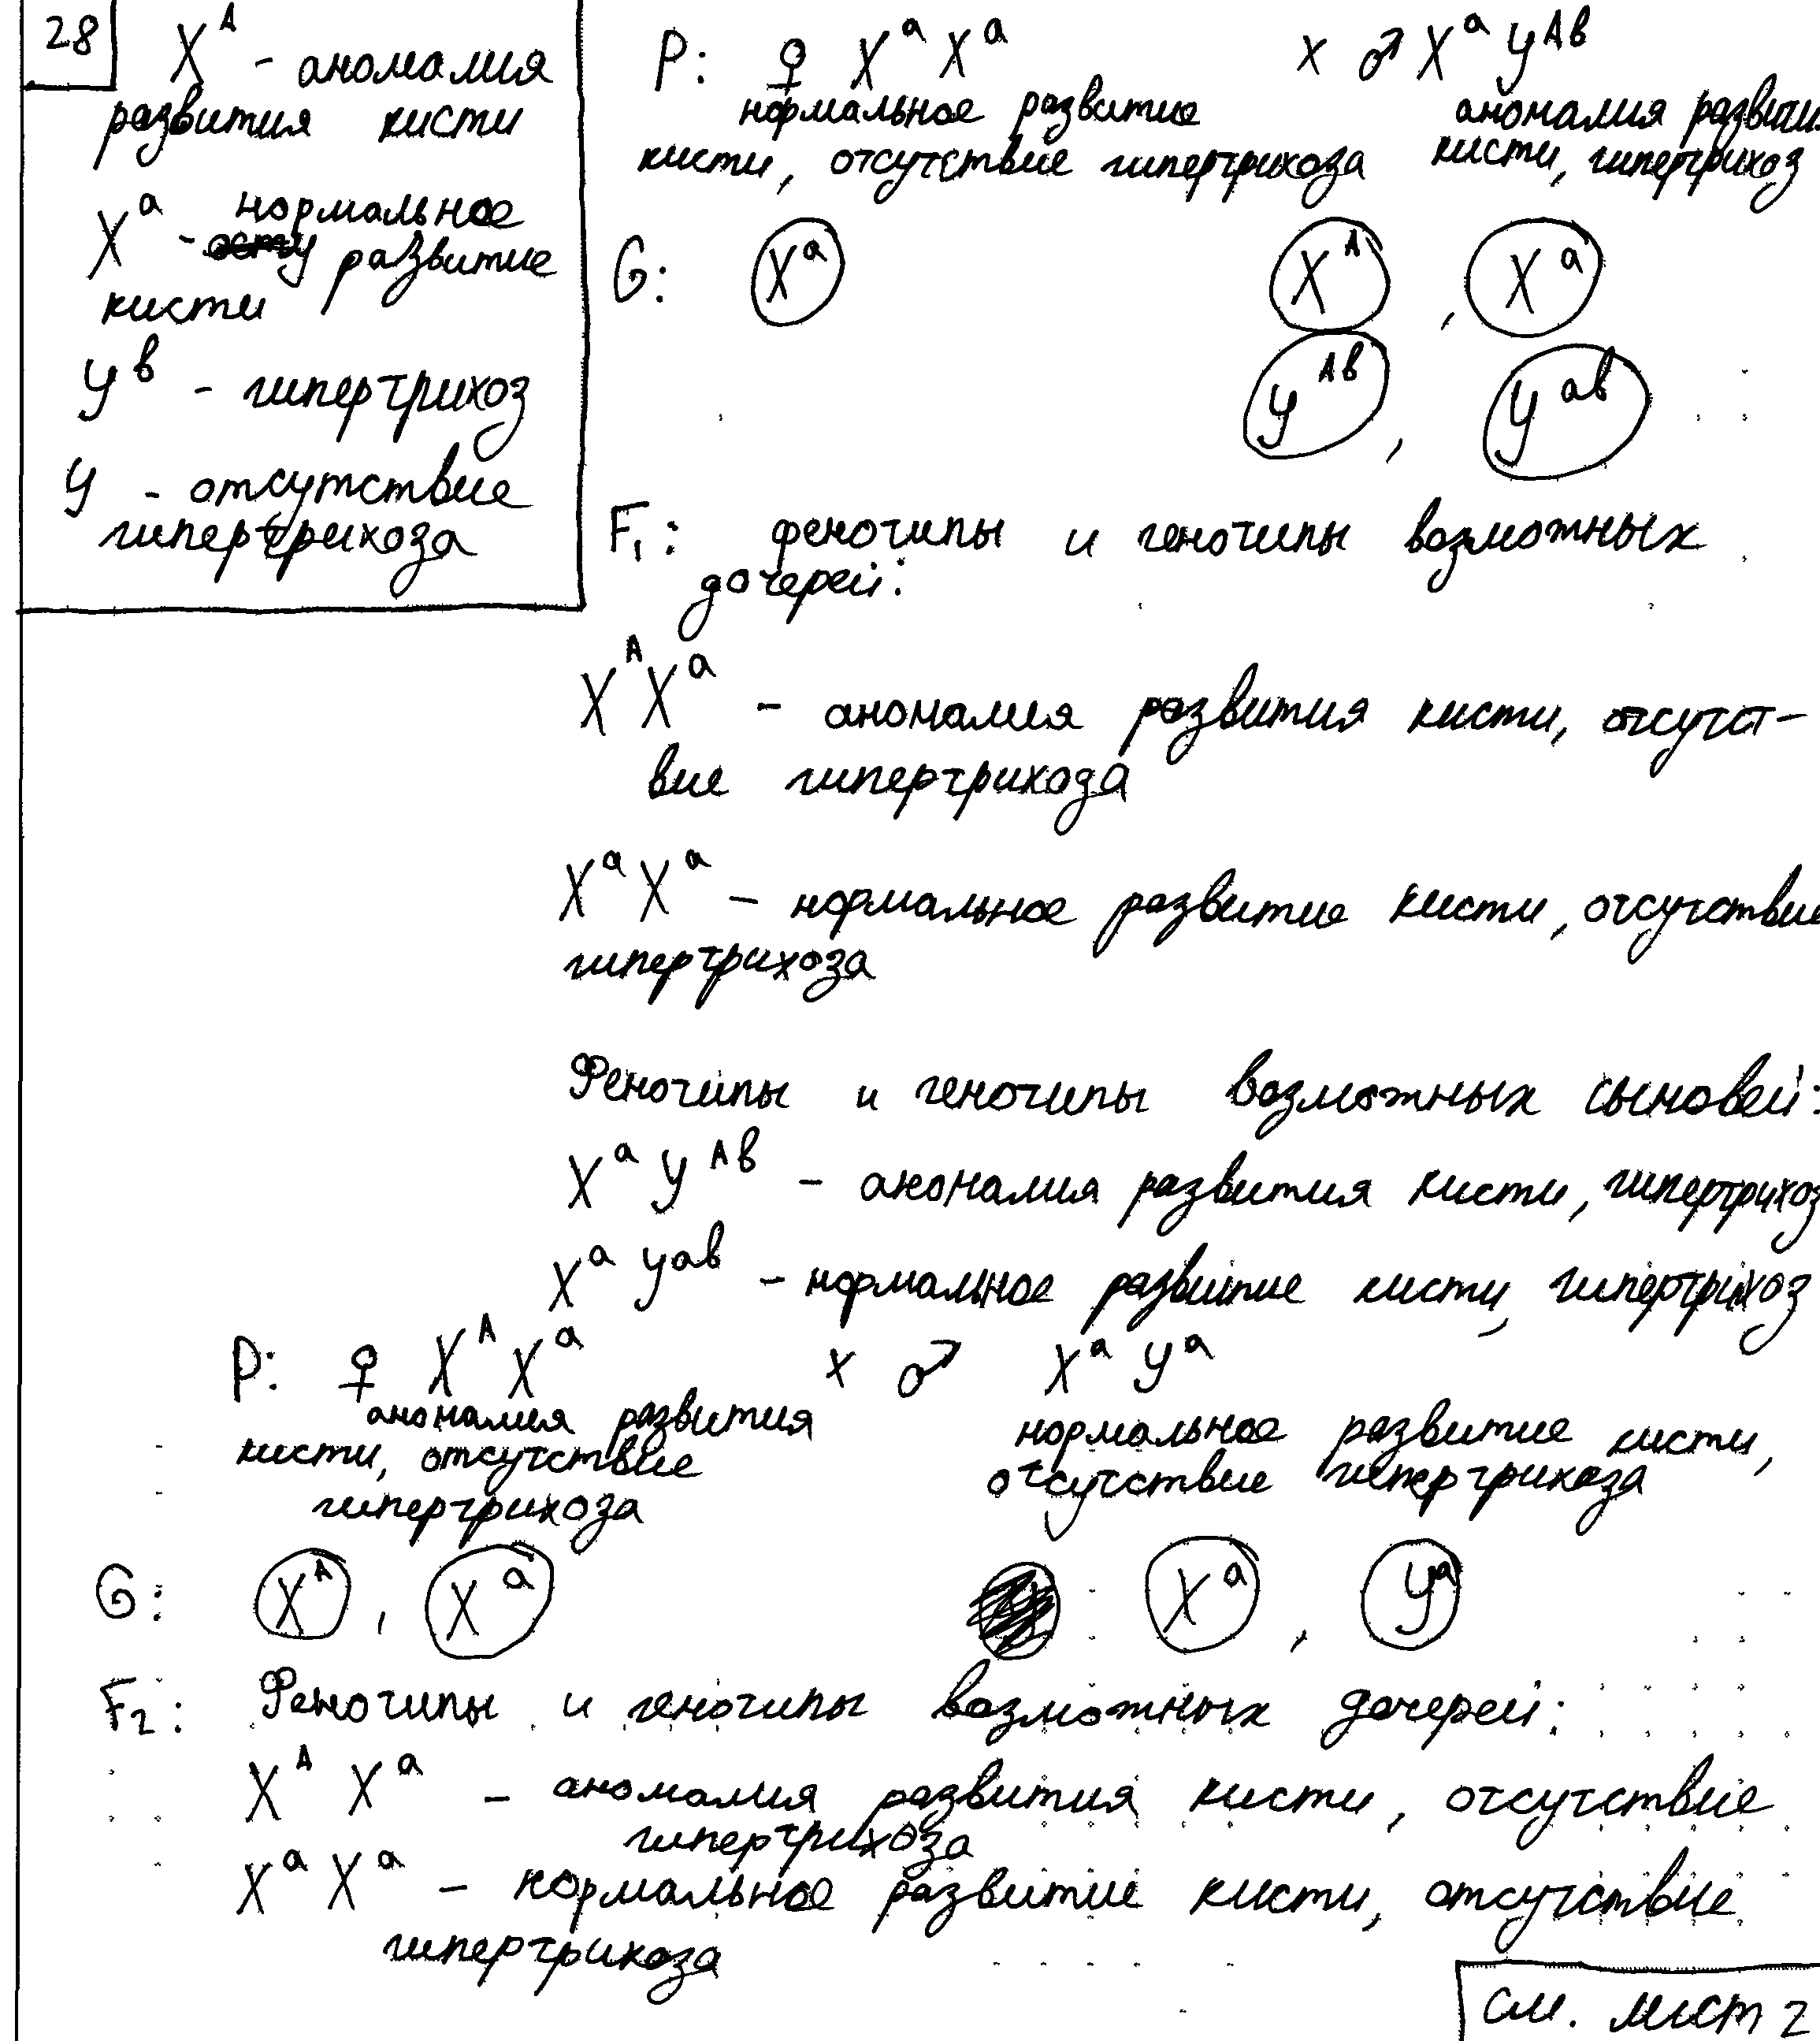 28
X^A - аномалия
развития кисти
X^a - нормальное
развитие
кисти
y^в - гипертрихоз
y - отсутствие
гипертрихоза
P: ♀ X^a X^a x ♂ X^a y^Aв
нормальное развитие аномалия развити
кисти, отсутствие гипертрихоза кисти, гипертрихоз
G: X^a X^A , X^a
y^Aв , y^aв
F1: фенотипы и генотипы возможных
дочерей:
X^A X^a - аномалия развития кисти, отсутст-
вие гипертрихоза
X^a X^a - нормальное развитие кисти, отсутствие
гипертрихоза
Фенотипы и генотипы возможных сыновей:
X^a y^Aв - аномалия развития кисти, гипертрихоз
X^a y^aв - нормальное развитие кисти, гипертрихоз
P: ♀ X^A X^a x ♂ X^a y^a
аномалия развития нормальное развитие кисти,
кисти, отсутствие отсутствие гипертрихоза
гипертрихоза
G: X^A , X^a X^a , y^a
F2: Фенотипы и генотипы возможных дочерей:
X^A X^a - аномалия развития кисти, отсутствие
гипертрихоза
X^a X^a - нормальное развитие кисти, отсутствие
гипертрихоза
см. лист 2